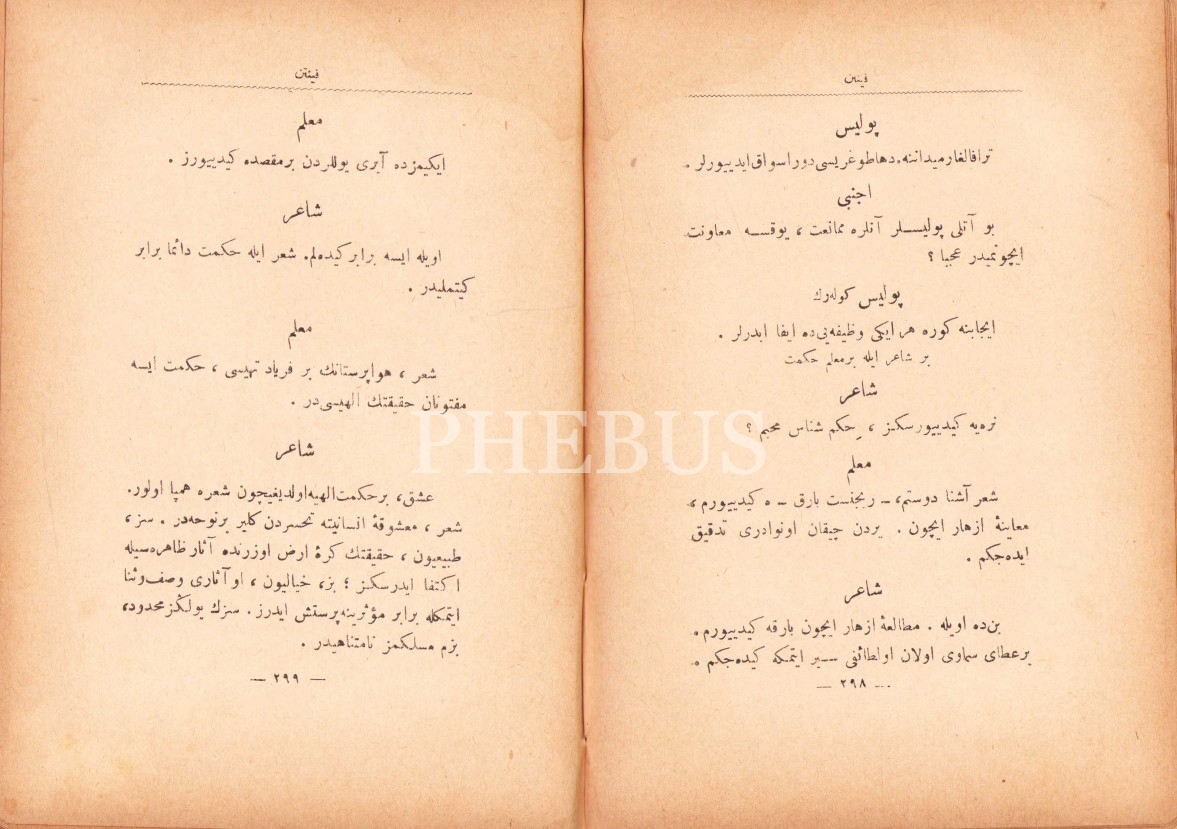 فينتن
پوليس
ترافالغار ميداننه. دها طوغريسى دوراسواق ايدييورلر.
اجنبى
بو آتلى پوليسلر آنلره ممانعت ، يوقسه معاونت
ايچونميدر عجبا ؟
پوليس كولەرك
ايجابنه كوره هر ايكى وظيفه يى ده ايفا ايدرلر .
بر شاعر ايله بر معلم حكمت
شاعر
نره يه كيدييورسكز ، حكم شناس محبم ؟
معلم
شعر آشنا دوستم، ــ ريجنست پارق ــ ه كيدييورم ،
معاينۀ ازهار ايچون . يردن چيقان اونوادرى تدقيق
ايده جكم .
شاعر
بن ده اويله . مطالعۀ ازهار ايچون پارقه كيدييورم .
بر عطاى سماوى اولان اولطائفى سير ايتمكه كيده جكم .
— ٢٩٨ —
فينتن
معلم
ايكيمزده آيرى يوللردن بر مقصده كيدييورز .
شاعر
اويله ايسه برابر كيده لم. شعر ايله حكمت دائما برابر
كيتمليدر .
معلم
شعر ، هواپرستانك بر فرياد تهيسى ، حكمت ايسه
مفتونان حقيقتك الهيسى در .
شاعر
عشق، بر حكمت الهيه اولديغيچون شعره همپا اولور.
شعر ، معشوقۀ انسانيته تحسردن كلير بر نوحه در . سز ،
طبيعيون ، حقيقتك كرۀ ارض اوزرنده آثار ظاهره سيله
اكتفا ايدرسكز ؛ بز، خياليون ، او آثارى وصف وثنا
ايتمكله برابر مؤثرينه پرستش ايدرز . سزك يولكز محدود،
بزم مسلكمز نامتناهيدر .
— ٢٩٩ —
PHEBUS